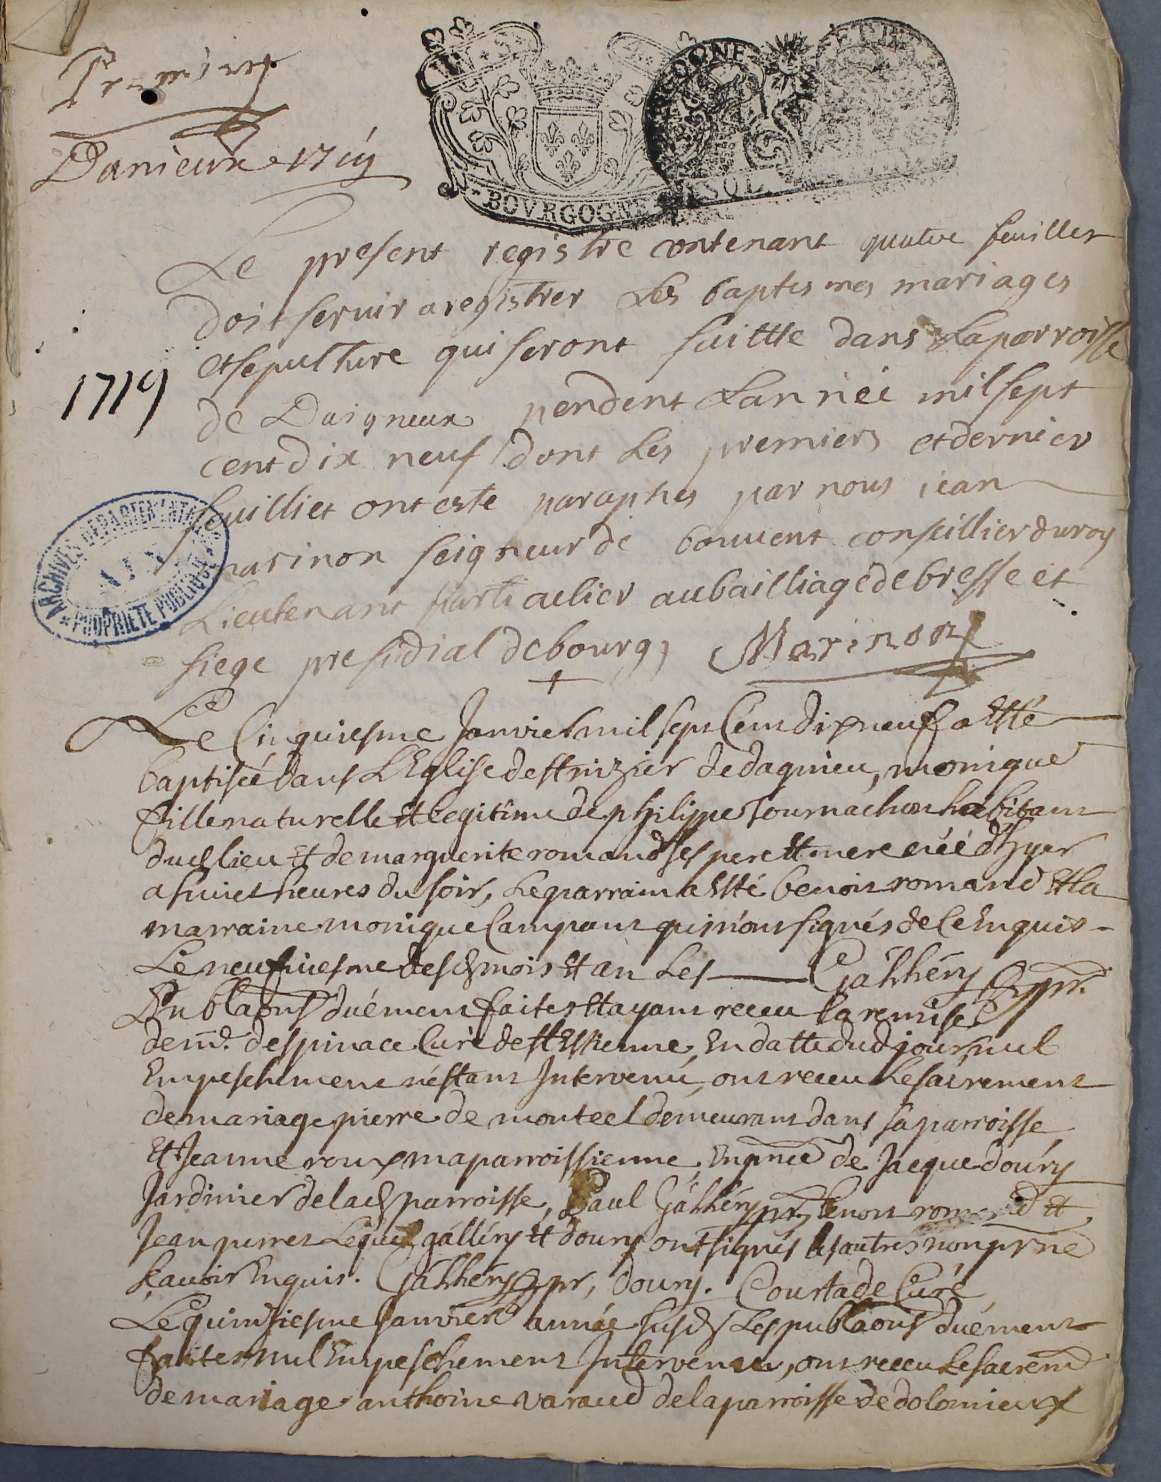 Premier
Danieux 1719
BOVRGOGNE
SOL
Le present registre contenant quatre feuilles
doit servir a registrer Les baptesmes mariages
et sepulture qui seront faittte dans La parroisse
de Daigneux pendent Lanneé mil sept
1719
cent dix neuf dont Les premiers et dernier
feuilliet ont esté paraphes par nous jean
marinon seigneur de bouvent conseillier du roy
ARCHIVES DEPARTEMENTALES
AIN
PROPRIETE PUBLIQUE
Lieutenant particulier au bailliage de bresse et
siege presidial de bourg Marinon
Le Cinquiesme Janvier mil sept Cent dix neuf a Esté
baptiseé dans L'Eglise de st nizier de dagnieu, monique
fille naturelle et Legitime de philippe Tournachon habitant
dud lieu Et de marguerite romand ses pere et mere neé d'hyer
a huict heures du soir, Le parrain a Esté benoit romand Et la
marraine monique Campant qui n'ont signés de ce Enquis
Le neufviesme desd mois Et an Les Gallery ppr.
Publaons duement faites Et ayant receu la remise
de mr. despinace Curé de st Estienne, En datte dud jour, nul
Empeschement n'estant Intervenu, ont receu Le sacrement
de mariage pierre de monteel demeurant dans sa parroisse
Et Jeanne roux ma parroissienne, En pnce de Jacque doury
Jardinier de lad parroisse, Paul Gallery ppr, benoit romand Et
Jean Lequel gallery Et doury ont signés les autres non pr ne
scavoir Enquis. Gallery ppr, doury. Courtade Curé
Le quinziesme Janvier année susd Les publaons duement
faites nul Empeschement Intervenu, ont receu Le sacremt
de mariage anthoine varaud de la parroisse de dolomieux